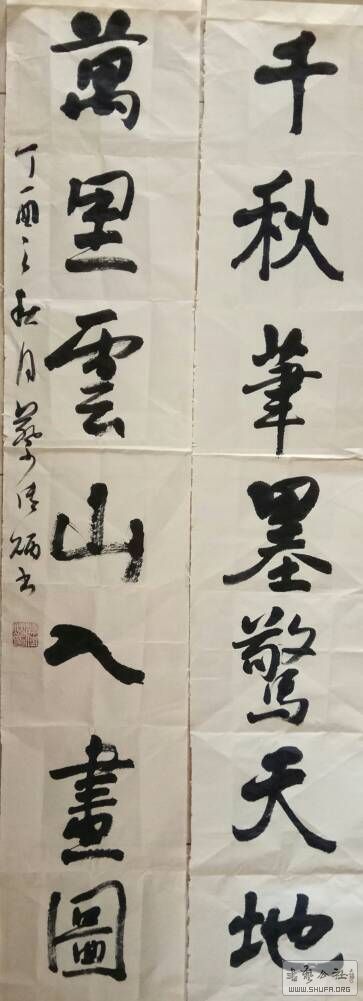 千秋筆墨驚天地
萬里雲山入畫圖
丁酉之秋月蔡清炳书
WWW.SHUFA.ORG